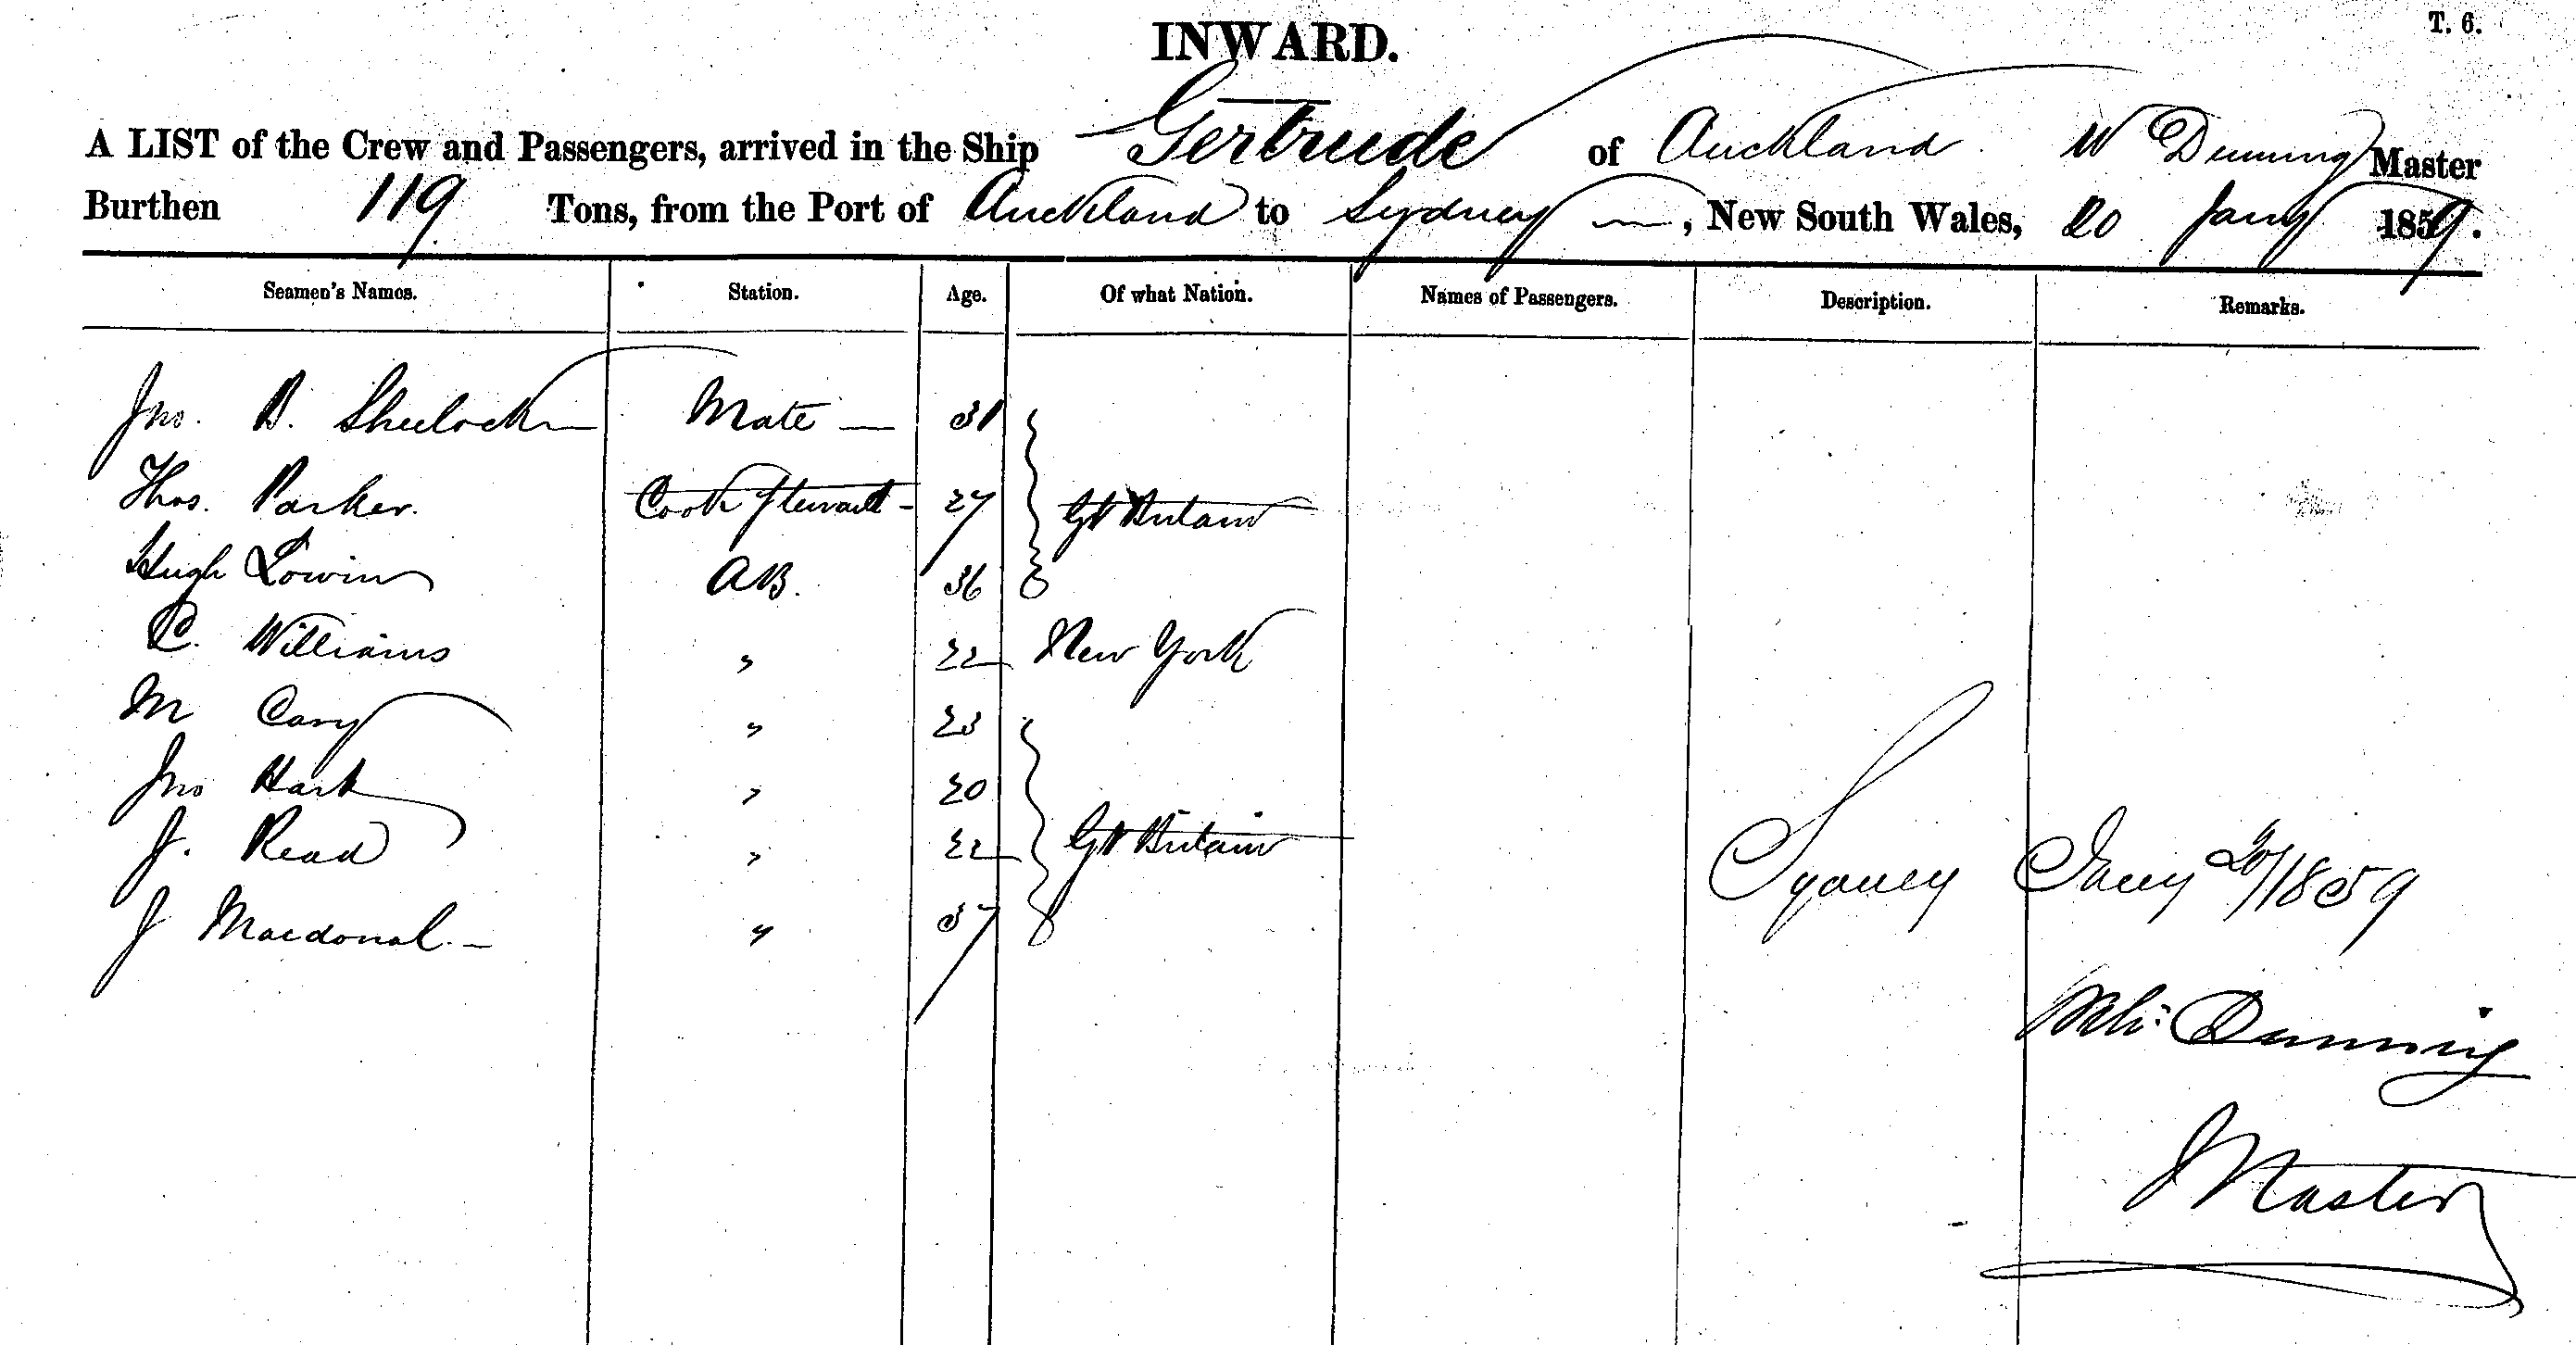 T. 6.
INWARD.
A LIST of the Crew and Passengers, arrived in the Ship Gertrude of Auckland W Dunning Master
Burthen 119 Tons, from the Port of Auckland to Sydney —, New South Wales, 20 Jany 1859.
Seamen's Names. Station. Age. Of what Nation. Names of Passengers. Description. Remarks.
Jno. B. Sheelock — Mate — 31
Thos. Parker. Cook & Steward - 27 Gt Britain
Hugh Lowin AB. 36
C. Williams " 22 New York
M Cary " 23
Jno Hart " 20
J. Read " 22 Gt Britain
J Macdonal. — " 37
Sydney Jany 20/1859
Wm: Dunning
Master